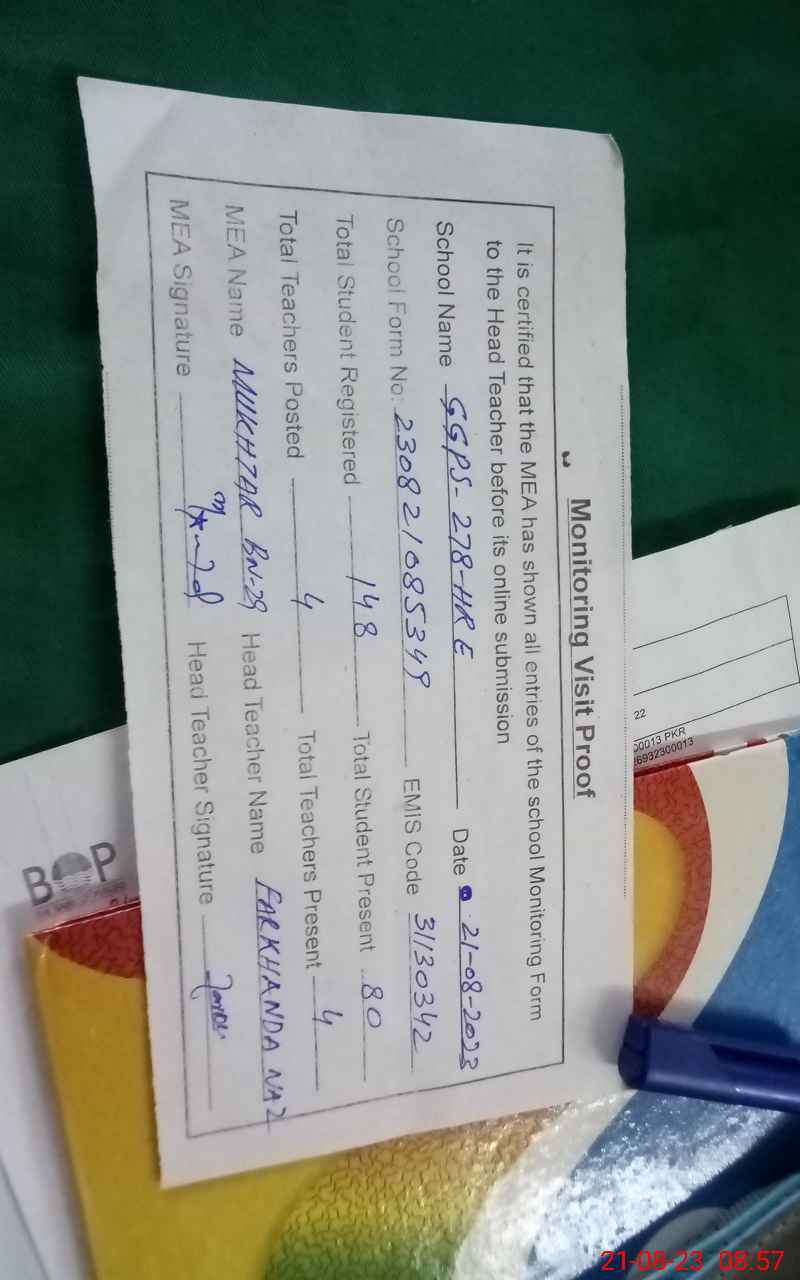 Monitoring Visit Proof
It is certified that the MEA has shown all entries of the school Monitoring Form
to the Head Teacher before its online submission
School Name GGPS-278-HRE Date 21-08-2023
School Form No: 230821085349 EMIS Code 31130342
Total Student Registered 148 Total Student Present 80
Total Teachers Posted 4 Total Teachers Present 4
MEA Name MUKHTAR BN-29 Head Teacher Name FARKHANDA NAZ
MEA Signature Head Teacher Signature
22
00013 PKR
26932300013
BOP
21-08-23 08:57